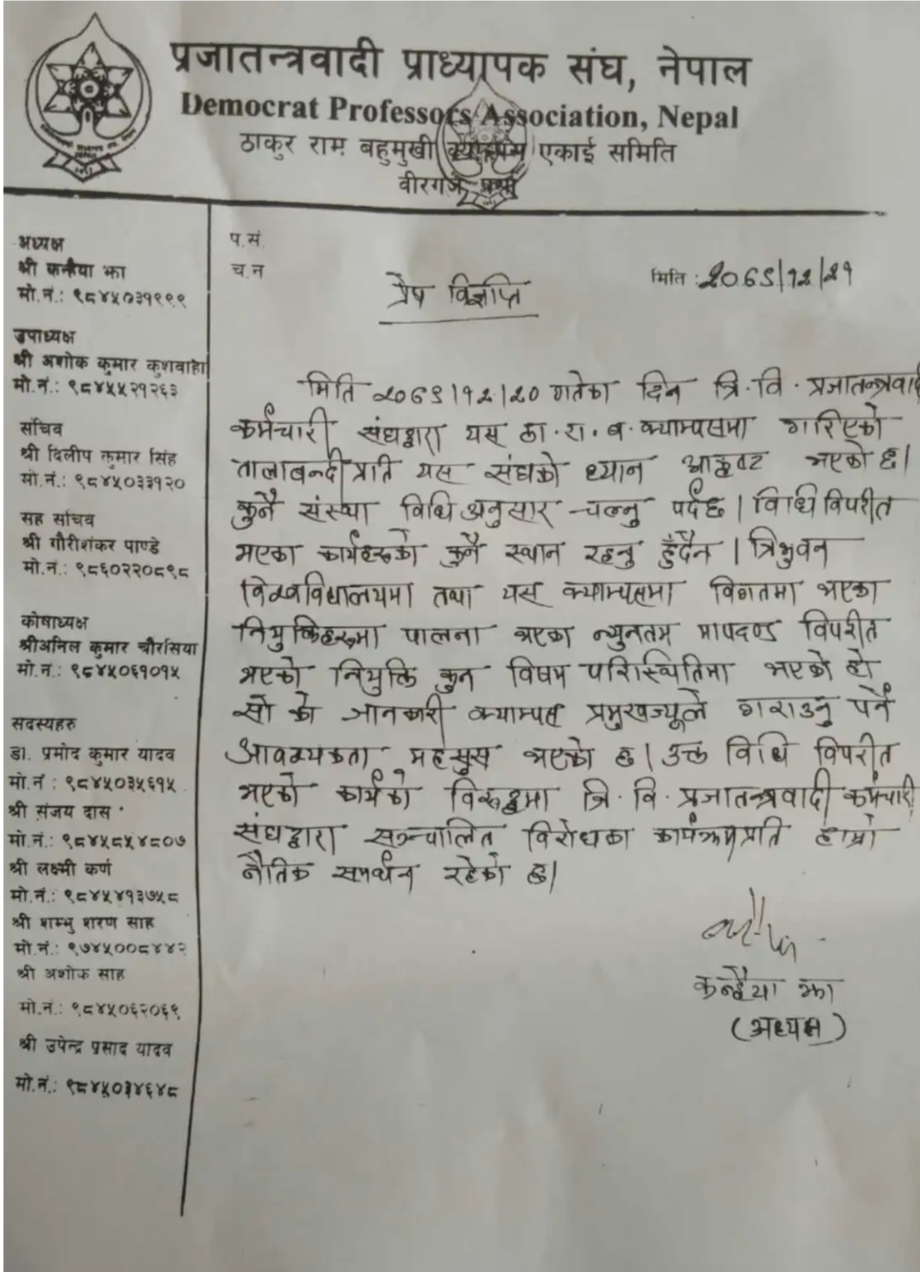 प्रजातन्त्रवादी प्राध्यापक संघ, नेपाल
Democrat Professors Association, Nepal
ठाकुर राम बहुमुखी क्याम्पस एकाई समिति
वीरगंज, पर्सा
अध्यक्ष
श्री कन्हैया झा
मो.नं.: ९८४५०३१९९९
उपाध्यक्ष
श्री अशोक कुमार कुशवाहा
मो.नं.: ९८४५५२१२६३
सचिव
श्री दिलीप कुमार सिंह
मो.नं.: ९८४५०३३१२०
सह सचिव
श्री गौरीशंकर पाण्डे
मो.नं.: ९८६०२२०८९८
कोषाध्यक्ष
श्रीअनिल कुमार चौरसिया
मो.नं.: ९८४५०६१०१५
सदस्यहरु
डा. प्रमोद कुमार यादव
मो.नं : ९८४५०३५६१५
श्री संजय दास
मो.नं.: ९८४५८५४८०७
श्री लक्ष्मी कर्ण
मो.नं.: ९८४५४१३७५८
श्री शम्भु शरण साह
मो.नं.: ९७४५००८४४२
श्री अशोक साह
मो.नं.: ९८४५०६२०६९
श्री उपेन्द्र प्रसाद यादव
मो.नं.: ९८४५०३४६४८
प.सं.
च.न
मिति : २०७९/१२/२१
प्रेष विज्ञप्ति
मिति २०७९/१२/२० गतेका दिन त्रि.वि. प्रजातन्त्रवादी
कर्मचारी संघद्वारा यस ठा.रा.ब.क्याम्पसमा गरिएको
तालाबन्दी प्रति यस संघको ध्यान आकृष्ट भएको छ।
कुनै संस्था विधि अनुसार चल्नु पर्दछ। विधि विपरीत
भएका कार्यहरुको कुनै स्थान रहनु हुँदैन। त्रिभुवन
विश्वविद्यालयमा तथा यस क्याम्पसमा विगतमा भएका
नियुक्तिहरुमा पालना भएका न्युनतम मापदण्ड विपरीत
भएको नियुक्ति कुन विषम परिस्थितिमा भएको हो
सो को जानकारी क्याम्पस प्रमुखज्यूले गराउनु पर्ने
आवश्यकता महसुस भएको छ। उक्त विधि विपरीत
भएको कार्यको विरुद्धमा त्रि.वि. प्रजातन्त्रवादी कर्मचारी
संघद्वारा सञ्चालित विरोधका कार्यक्रमप्रति हाम्रो
नैतिक समर्थन रहेको छ।
कन्हैया झा
(अध्यक्ष)